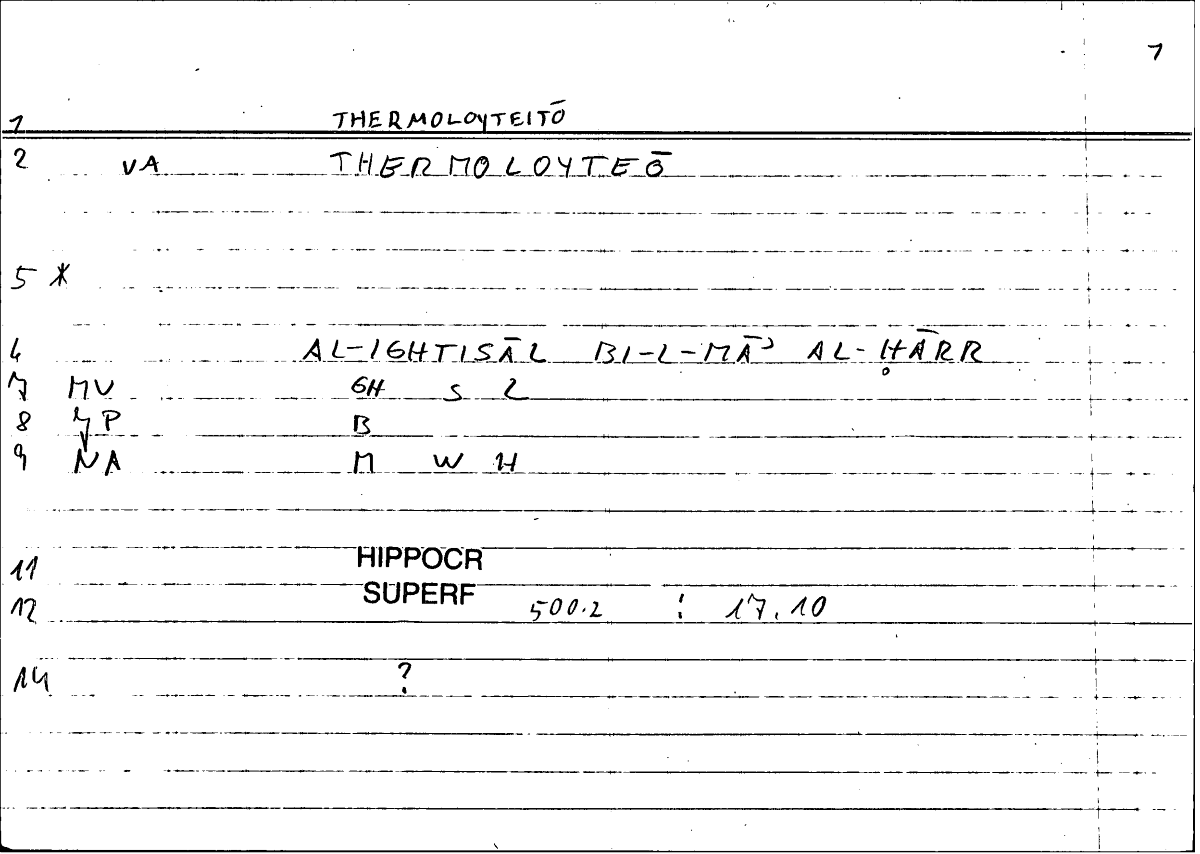 1
1 THERMOLOYTEITŌ
2 VA THERMOLOYTEŌ
5 *
4 AL-IGHTISĀL BI-L-MĀʾ AL-ḤĀRR
7 MV GH S L
8 P B
9 NA M W H
11 HIPPOCR
12 SUPERF 500.2 : 17.10
14 ?